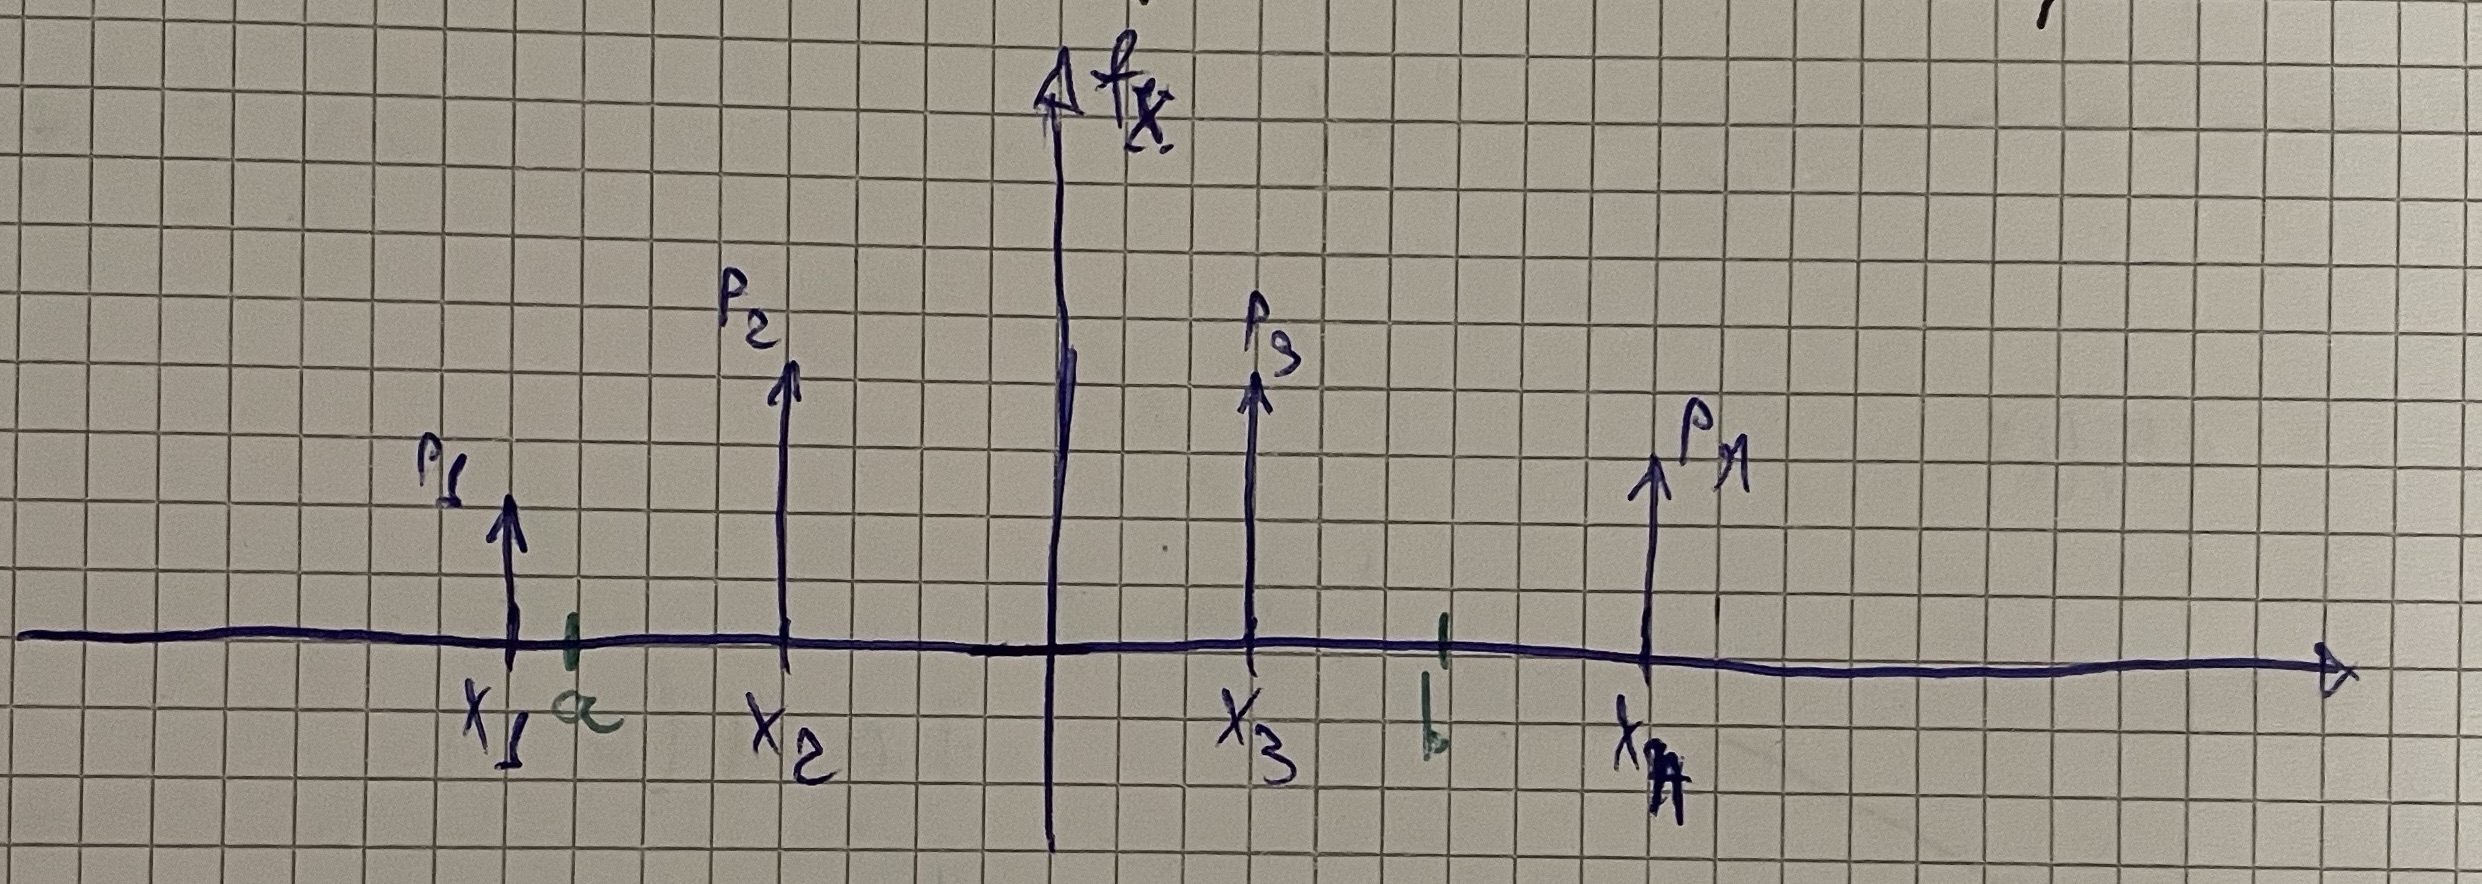 fX
P2
P3
P1
Pn
X1 a X2 X3 b Xn